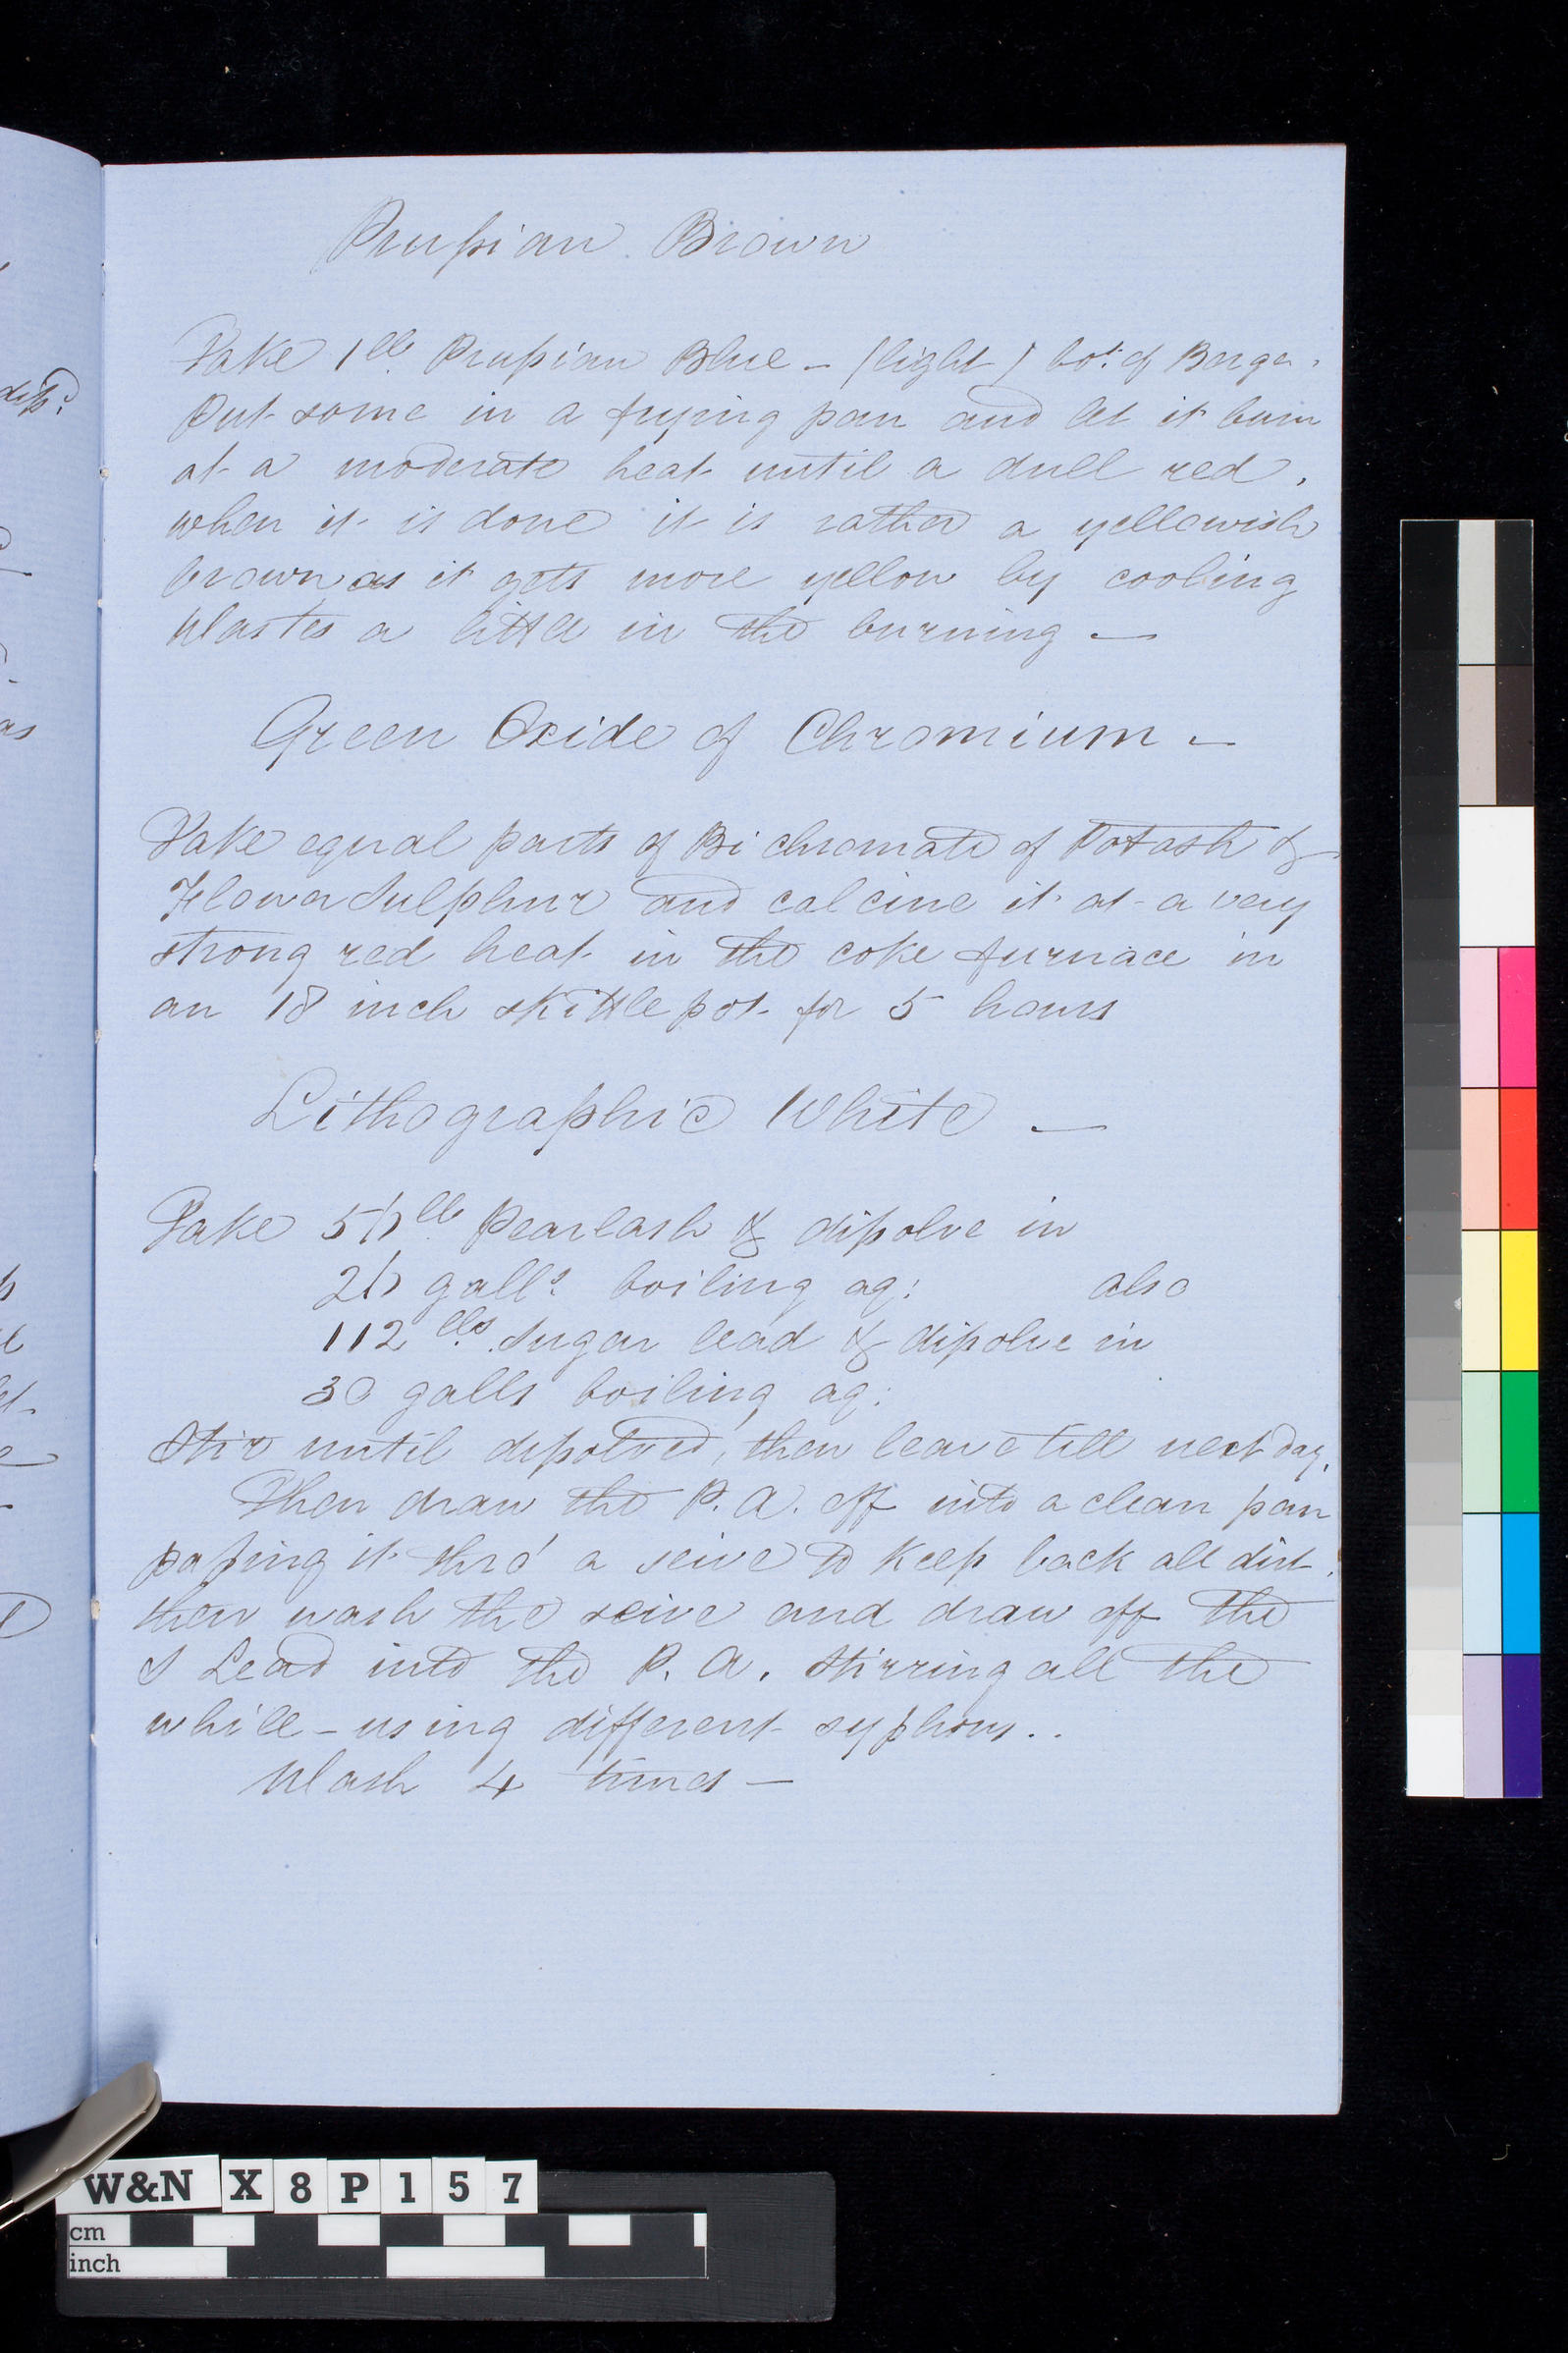 Prussian Brown
Take 1 lb Prussian Blue - (light) bot. of Berger.
Put some in a frying pan and let it burn
at a moderate heat until a dull red,
when it is done it is rather a yellowish
brown as it gets more yellow by cooling
Wastes a little in the burning —
Green Oxide of Chromium —
Take equal parts of Bi chromate of Potash &
Flower Sulphur and calcine it at a very
strong red heat in the coke furnace in
an 18 inch skittle pot for 5 hours
Lithographic White —
Take 56 lb Pearlash & dissolve in
26 galls boiling aq: also
112 lbs Sugar lead & dissolve in
30 galls boiling aq:
Stir until dissolved, then leave till next day.
Then draw the P. A. off into a clean pan
passing it thro' a seive to keep back all dirt.
then wash the seive and draw off the
S Lead into the P. A. stirring all the
while - using different syphons..
Wash 4 times —
as
W&N X8P157
cm
inch